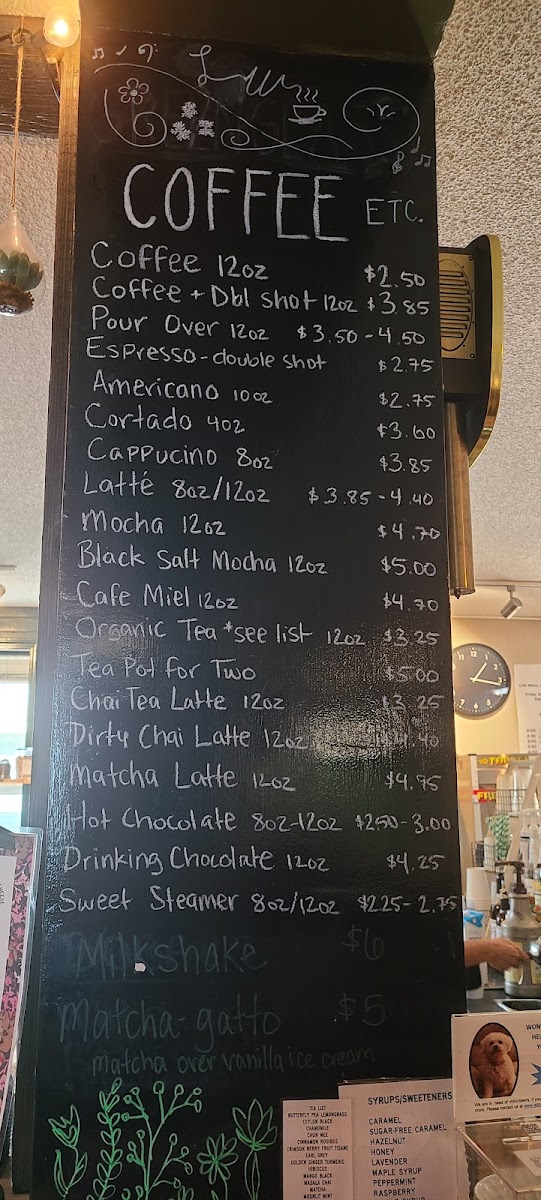 COFFEE ETC.
Coffee 12oz $2.50
Coffee + Dbl shot 12oz $3.85
Pour Over 12oz $3.50-4.50
Espresso-double shot $2.75
Americano 10oz $2.75
Cortado 4oz $3.60
Cappucino 8oz $3.85
Latté 8oz/12oz $3.85-4.40
Mocha 12oz $4.70
Black Salt Mocha 12oz $5.00
Cafe Miel 12oz $4.70
Organic Tea *see list 12oz $3.25
Tea Pot for Two $5.00
Chai Tea Latte 12oz $3.25
Dirty Chai Latte 12oz $4.40
Matcha Latte 12oz $4.95
Hot Chocolate 8oz-12oz $2.50-3.00
Drinking Chocolate 12oz $4.25
Sweet Steamer 8oz/12oz $2.25-2.75
Milkshake $6
Matcha-gatto $5
matcha over vanilla ice cream
TEA LIST
BUTTERFLY PEA LEMONGRADE
CEYLON BLACK
CHAMOMILE
CHUN MEE
CINNAMON ROOIBOS
CRIMSON BERRY FRUIT TISANE
EARL GREY
GOLDEN GINGER TURMERIC
HIBISCUS
MANGO BLACK
MASALA CHAI
MATCHA
SYRUPS/SWEETENERS
CARAMEL
SUGAR-FREE CARAMEL
HAZELNUT
HONEY
LAVENDER
MAPLE SYRUP
PEPPERMINT
RASPBERRY